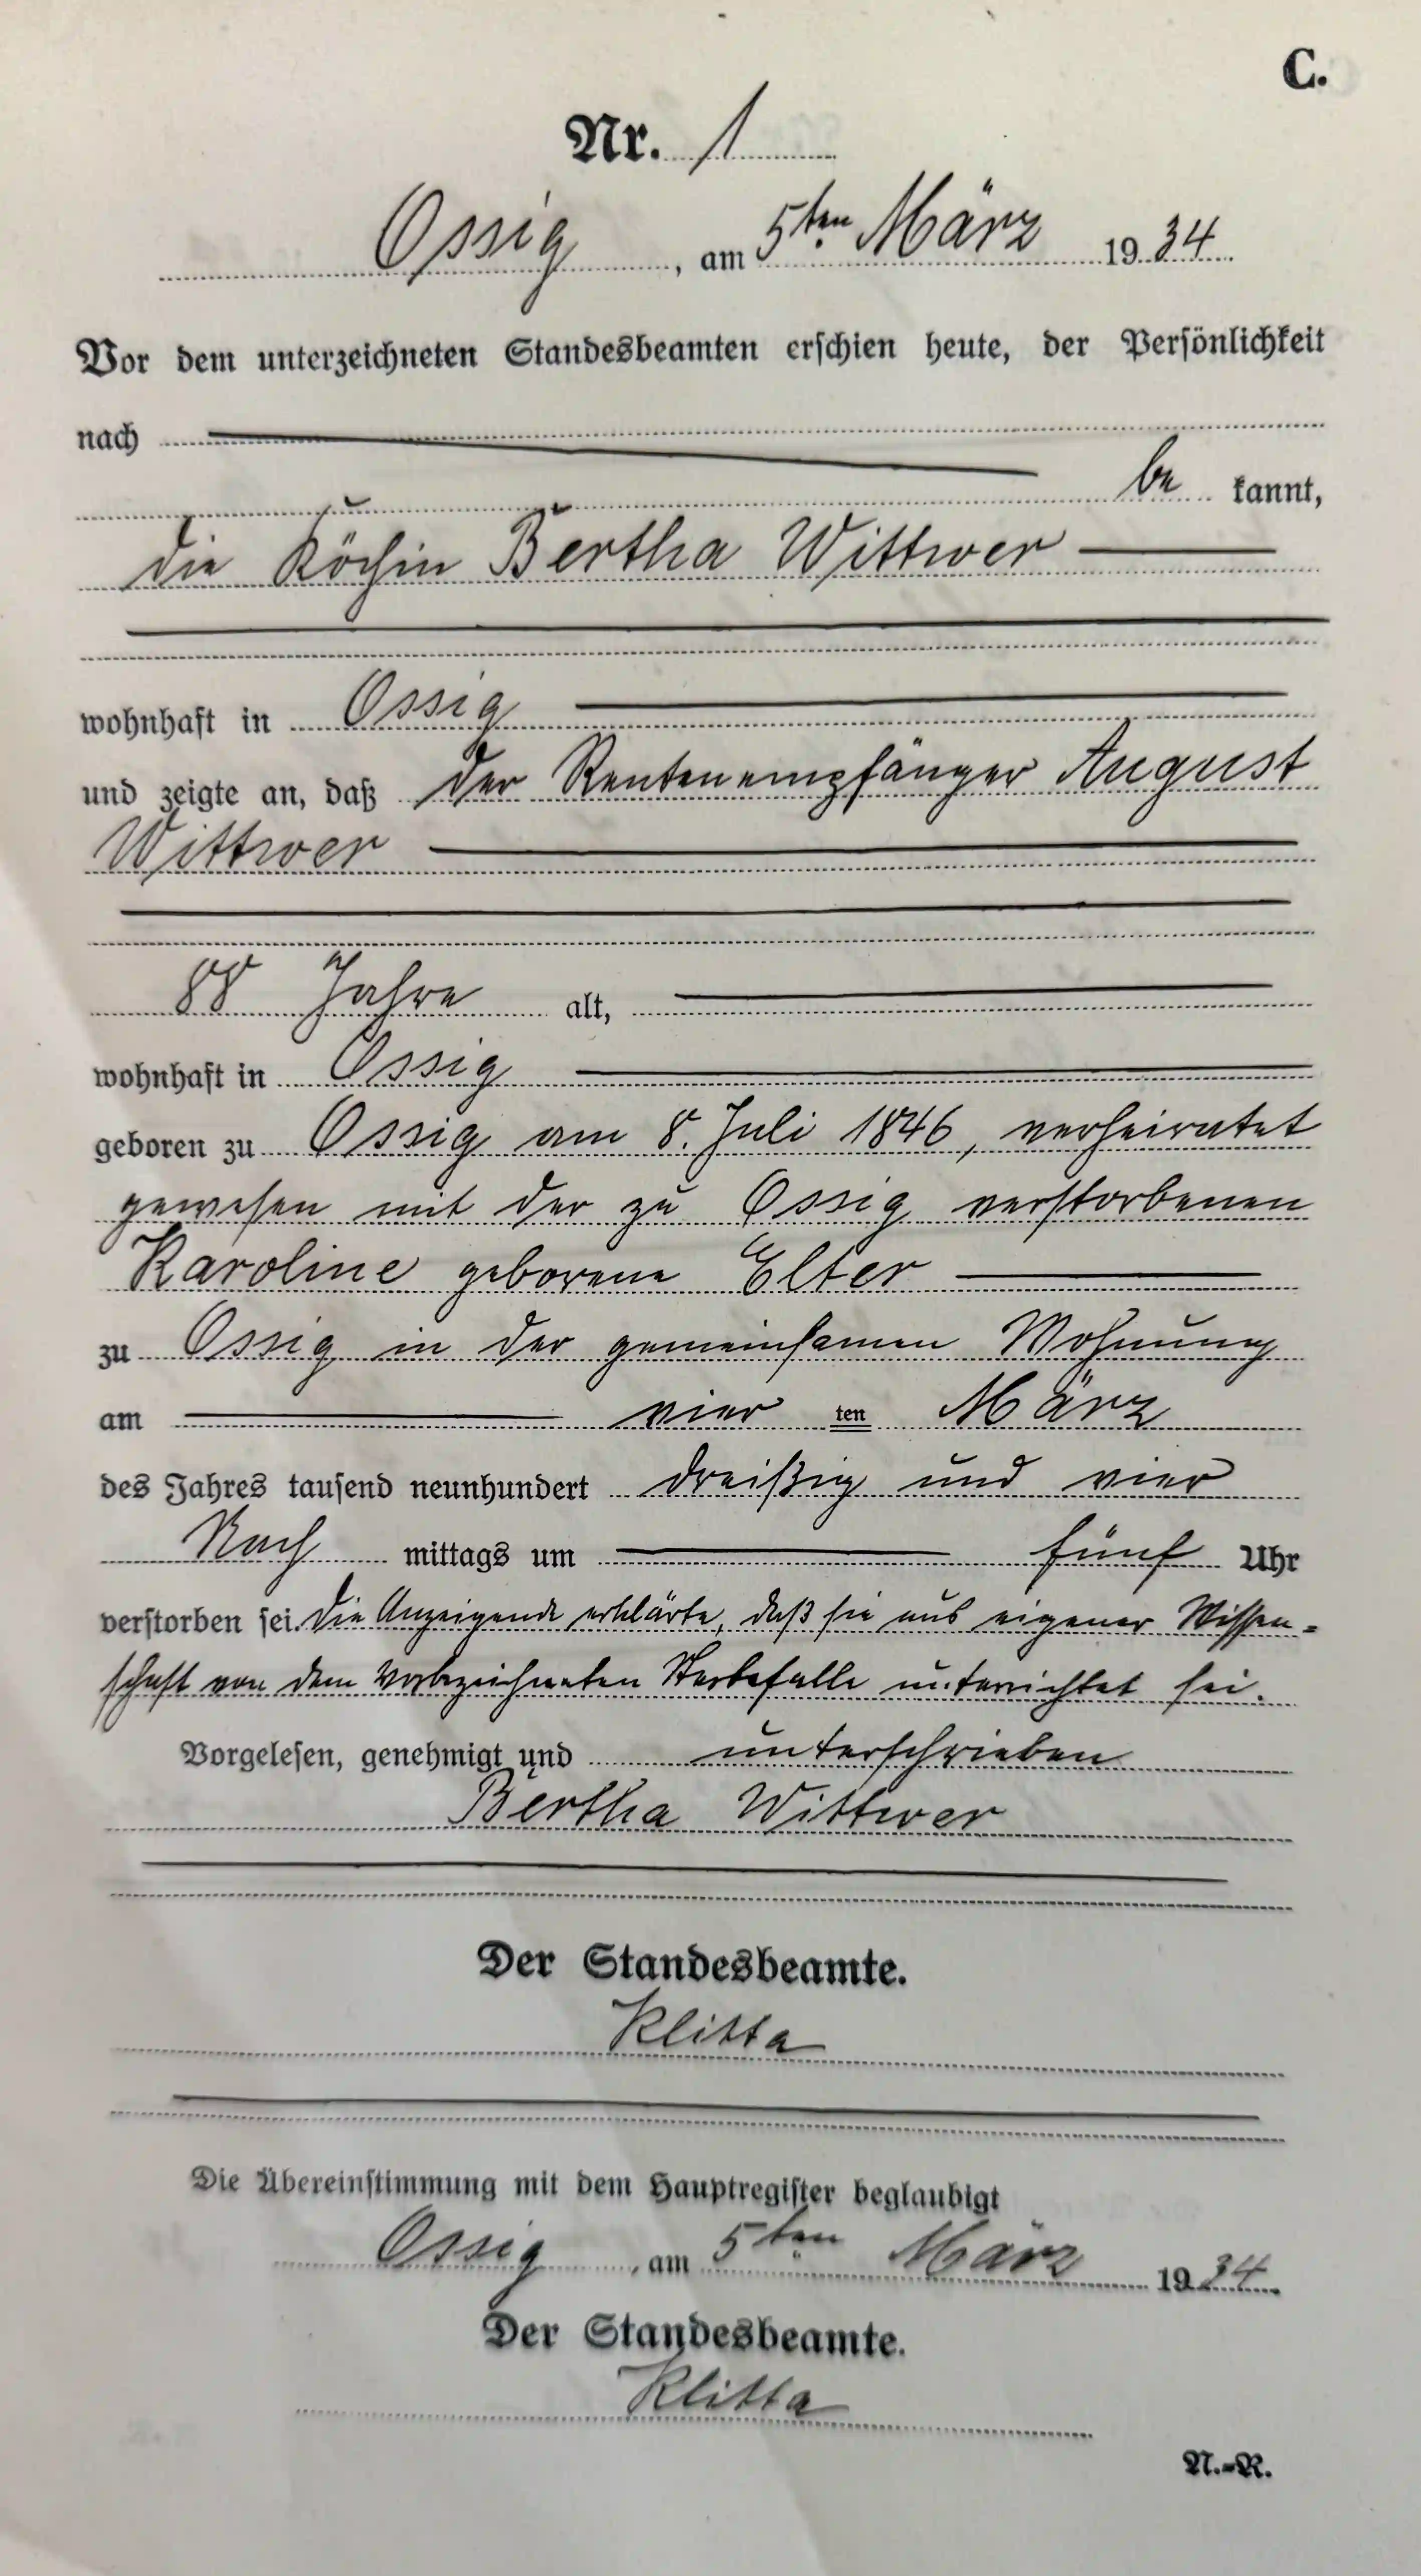 C.
Nr. 1
Ossig, am 5ten März 1934
Vor dem unterzeichneten Standesbeamten erschien heute, der Persönlichkeit
nach
be kannt,
die Köchin Bertha Wittwer
wohnhaft in Ossig
und zeigte an, daß der Rentenempfänger August
Wittwer
88 Jahre alt,
wohnhaft in Ossig
geboren zu Ossig am 8. Juli 1846, verheiratet
gewesen mit der zu Ossig verstorbenen
Karoline geborene Elter
zu Ossig in der gemeinsamen Wohnung
am vier ten März
des Jahres tausend neunhundert dreißig und vier
Nach mittags um fünf Uhr
verstorben sei. Die Anzeigende erklärte, daß sie aus eigener Wissen=
schaft von dem vorbezeichneten Sterbefalle unterrichtet sei.
Vorgelesen, genehmigt und unterschrieben
Bertha Wittwer
Der Standesbeamte.
Klitta
Die Übereinstimmung mit dem Hauptregister beglaubigt
Ossig, am 5ten März 1934.
Der Standesbeamte.
Klitta
N.-R.